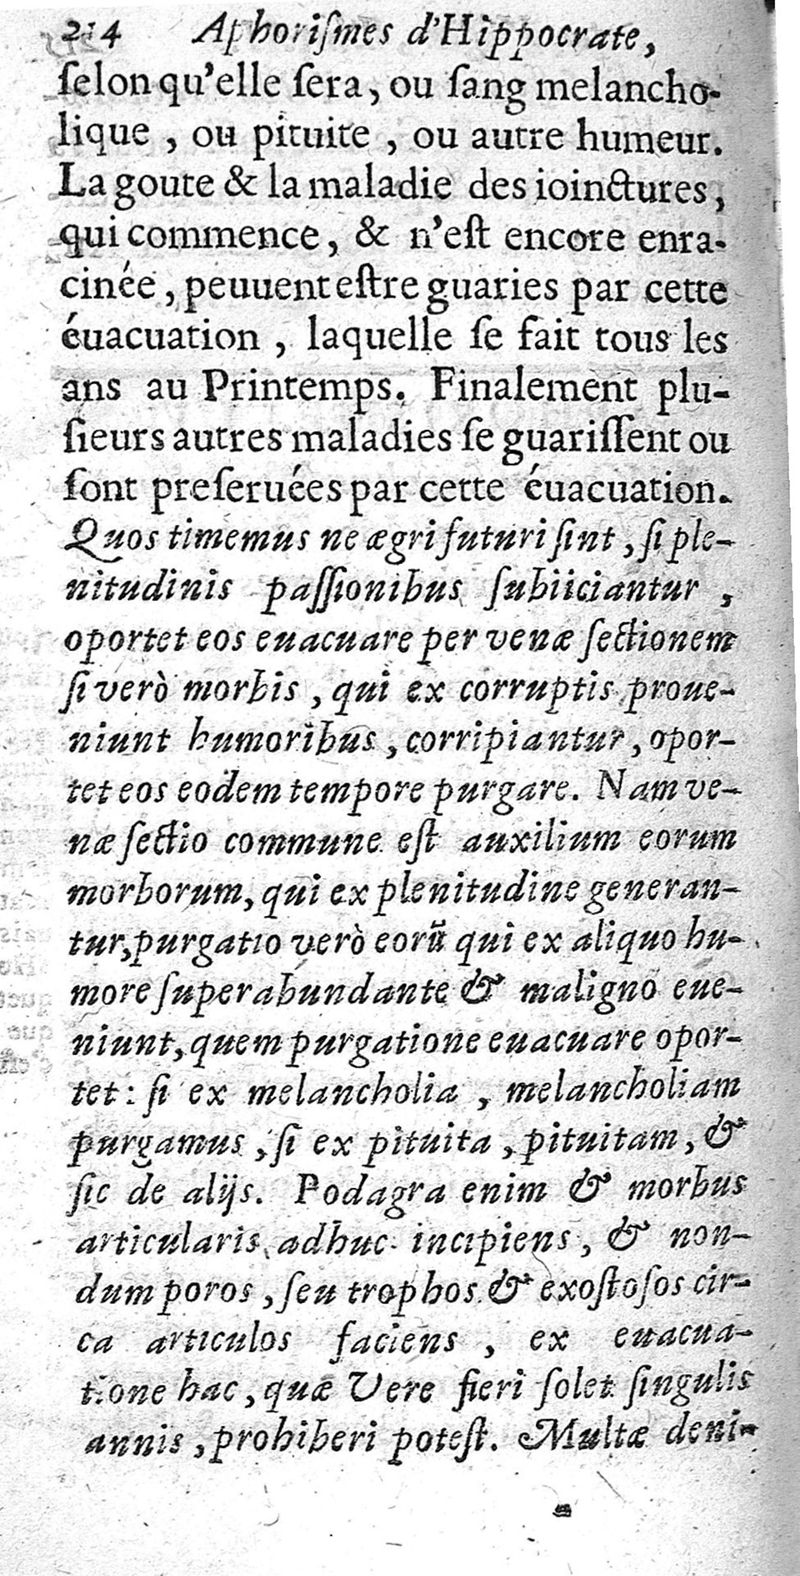 214 Aphoriſmes d'Hippocrate,
ſelon qu'elle ſera, ou ſang melancho-
lique, ou pituite, ou autre humeur.
La goute & la maladie des ioinctures,
qui commence, & n'eſt encore enra-
cinée, peuuent eſtre guaries par cette
éuacuation, laquelle ſe fait tous les
ans au Printemps. Finalement plu-
ſieurs autres maladies ſe guariſſent ou
ſont preſeruées par cette éuacuation.
Quos timemus ne ægri futuri ſint, ſi ple-
nitudinis paſſionibus ſubiiciantur,
oportet eos euacuare per venæ ſectionem
ſi verò morbis, qui ex corruptis proue-
niunt humoribus, corripiantur, opor-
tet eos eodem tempore purgare. Nam ve-
næ ſectio commune eſt auxilium eorum
morborum, qui ex plenitudine generan-
tur, purgatio verò eorũ qui ex aliquo hu-
more ſuperabundante & maligno eue-
niunt, quem purgatione euacuare opor-
tet: ſi ex melancholia, melancholiam
purgamus, ſi ex pituita, pituitam, &
ſic de alijs. Podagra enim & morbus
articularis adhuc incipiens, & non-
dum poros, ſeu trophos & exoſtoſos cir-
ca articulos faciens, ex euacua-
tione hac, quæ Vere fieri ſolet ſingulis
annis, prohiberi poteſt. Multæ deni-